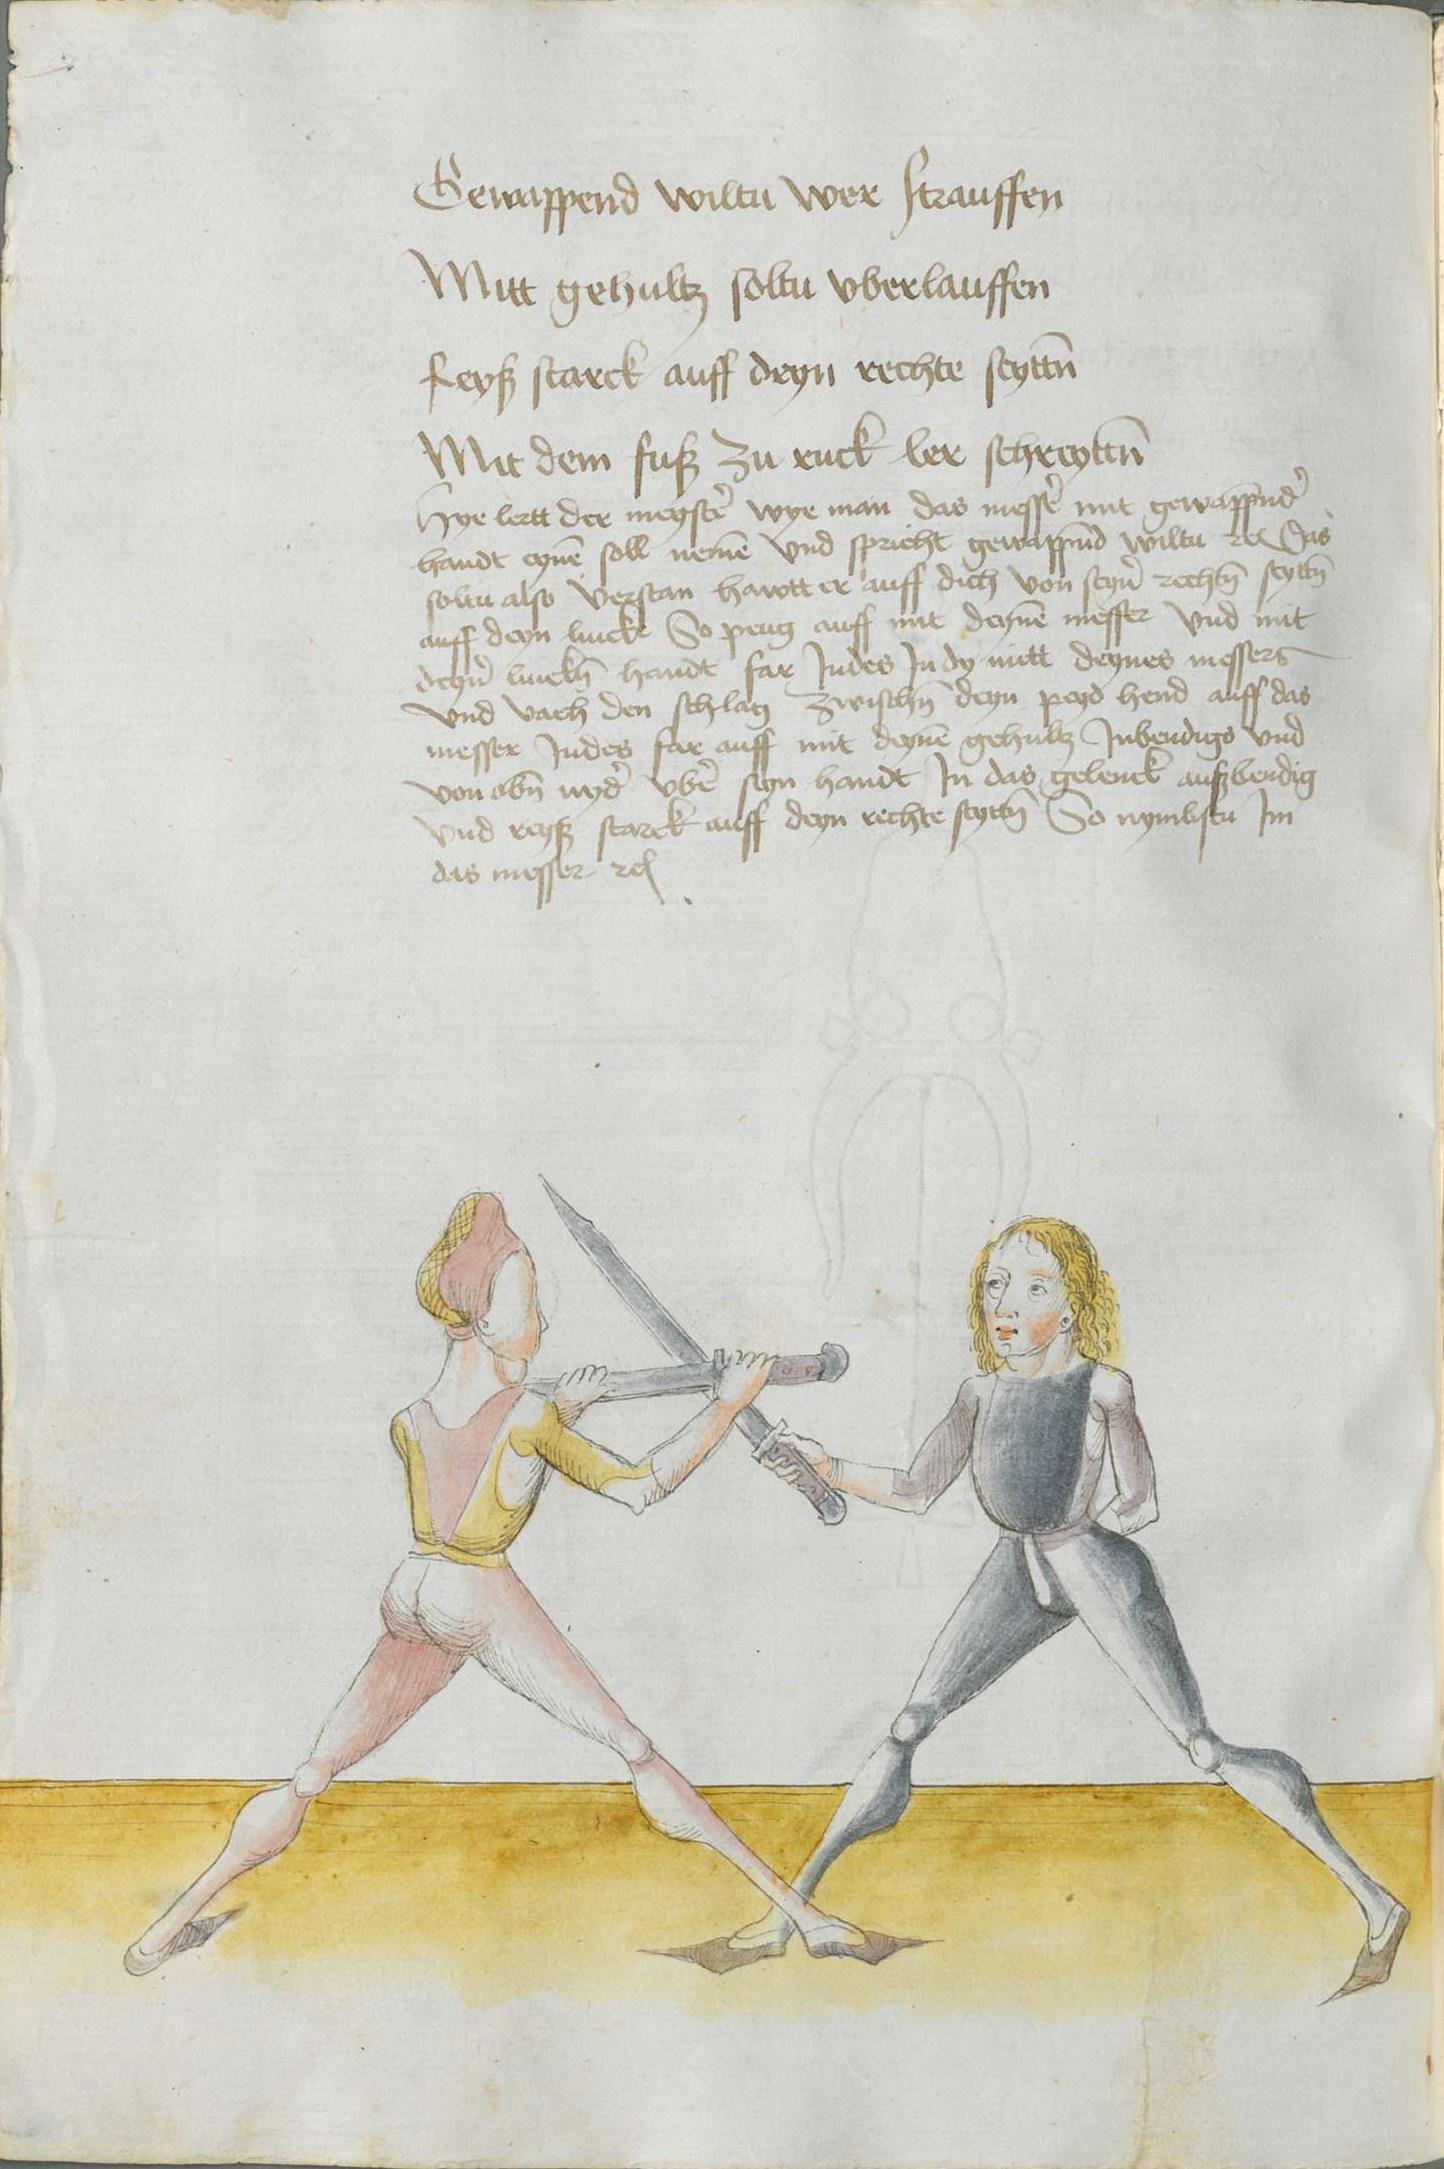 Gewappend wiltu wer strauffen
Mitt gehultz soltu vberlauffen
Reyß starck auff deyn rechte seyttn̄
Mit dem fuß zu ruck ler schreyttn̄
Hye lertt der meyster̄ wye man das messer̄ mit gewappnd̄
handt eynē soll nemē vnd spricht gewappnd̄ wiltu rc Das
soltu also verstan hawtt er auff dich von seyn̄ rechtn̄ seyttn̄
auff deyn linckr So peug auff mit deynē messer vnd mit
deyn̄ linckn̄ handt far Indes In dy mitt deynes messers
vnd vach den schlag zwischn̄ deyn peyd hend auff das
messer Indes far auff mit deynē gehultz Inbendigs vnd
von obn̄ nyd̄ vber̄ seyn handt In das gelenck außbendig
vnd reyß starck auff deyn rechte seyttn̄ So nymbstu Im
das messer rc